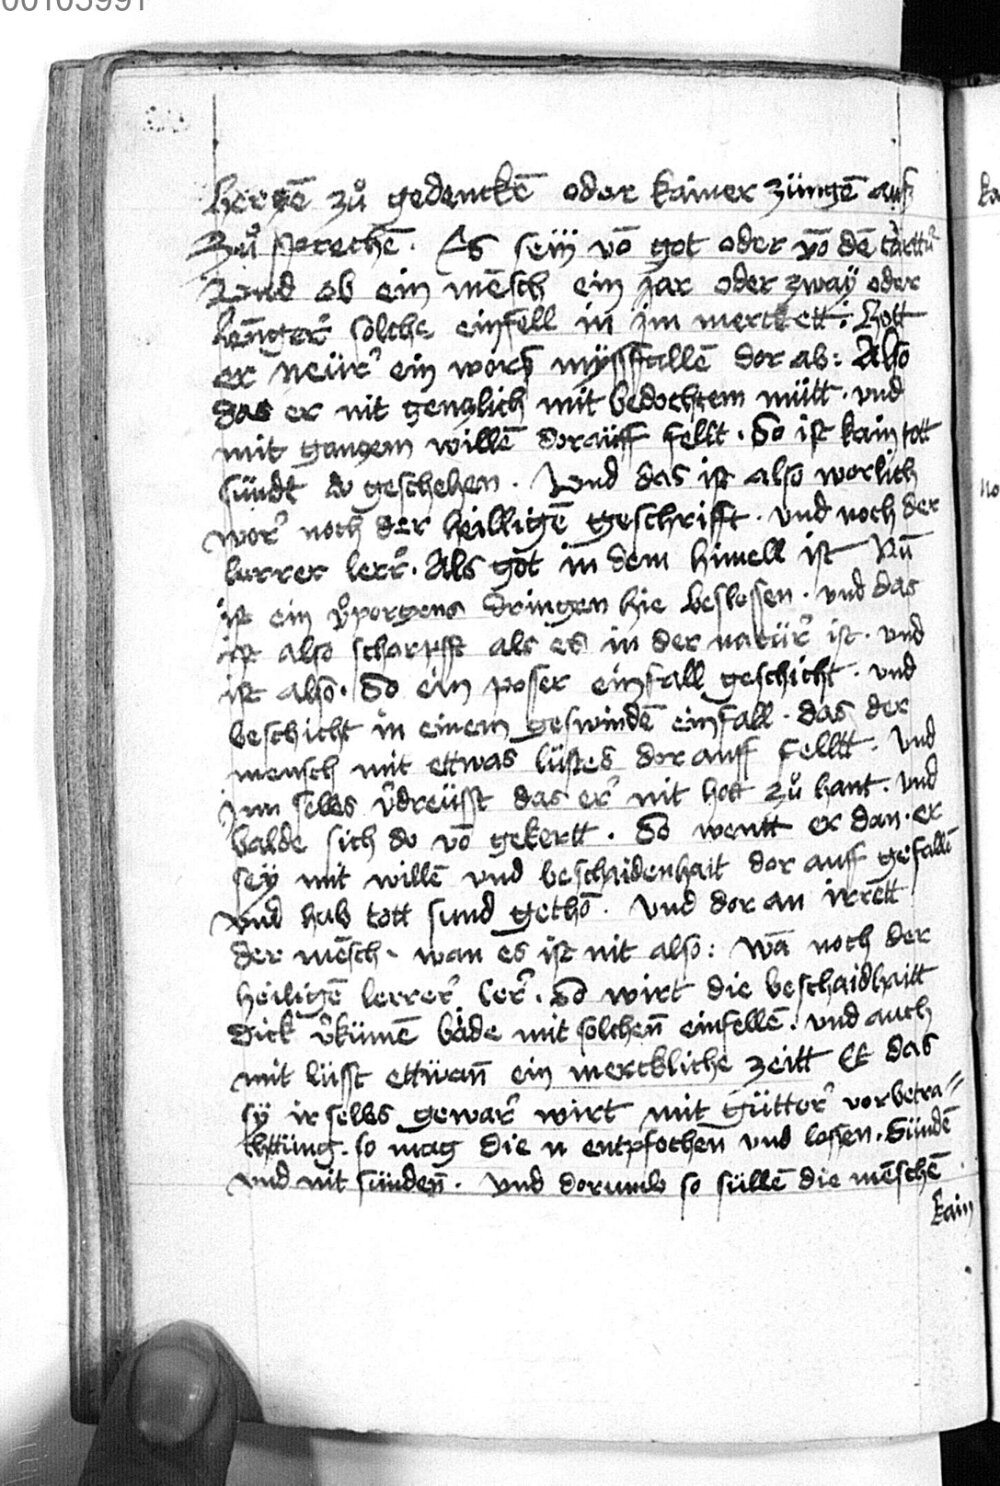 00103991
herczē zů gedenckē oder kainer züngē auß
Zů sprechē. Es seÿ vō got oder vō dē
Vnd ob ein mēsch ein jar oder zwaÿ oder
lenger solche einfell in jm merckett: Hett
er neür ein worß myssfallē dor ab: Also
das er nit genczlich mit bedochtem müͤtt. vnd
mit ganczem willē dorauff fellt. So ist kain tott
sündt do geschehen. Vnd das ist also worlich
wor noch der heilligē geschrifft. vnd noch der
lerrer lerr. Als got in dem himell ist Nū
ist ein v̊porgens dringen hie beslossen. vnd das
ist also scharpfft als es in der natür ist. vnd
ist also. So ein posser einfall geschicht. vnd
beschicht in einem geswindē einfall. das der
mensch mit ettwas lüstes dorauff felltt. Vnd
Jm selbs v̊dreüsst das er nit hott zů hant. Vnd
balde sich do vō gekertt. So wentt er dan. er
seÿ mit willē vnd beschaidenhait dor auff gefallē
vnd hab tott sund gethō. Vnd dor an irrett
der mēsch. wan es ist nit also: Wā noch der
heiligē lerrer ler. So wirt die beschaidhaitt
dick v̊kümē bäde mit solchen̄ einfellē. vnd auch
mit lüsst ettwan̄ ein merckliche zeitt Ee das
sÿ ir selbs gewar wirt mit gütter vorbetra=
chttüng. so mag die n entpfochen vnd lossen. Sündē
vnd nit sünden̄. Vnd dorumb so süllē die mēschē
kain